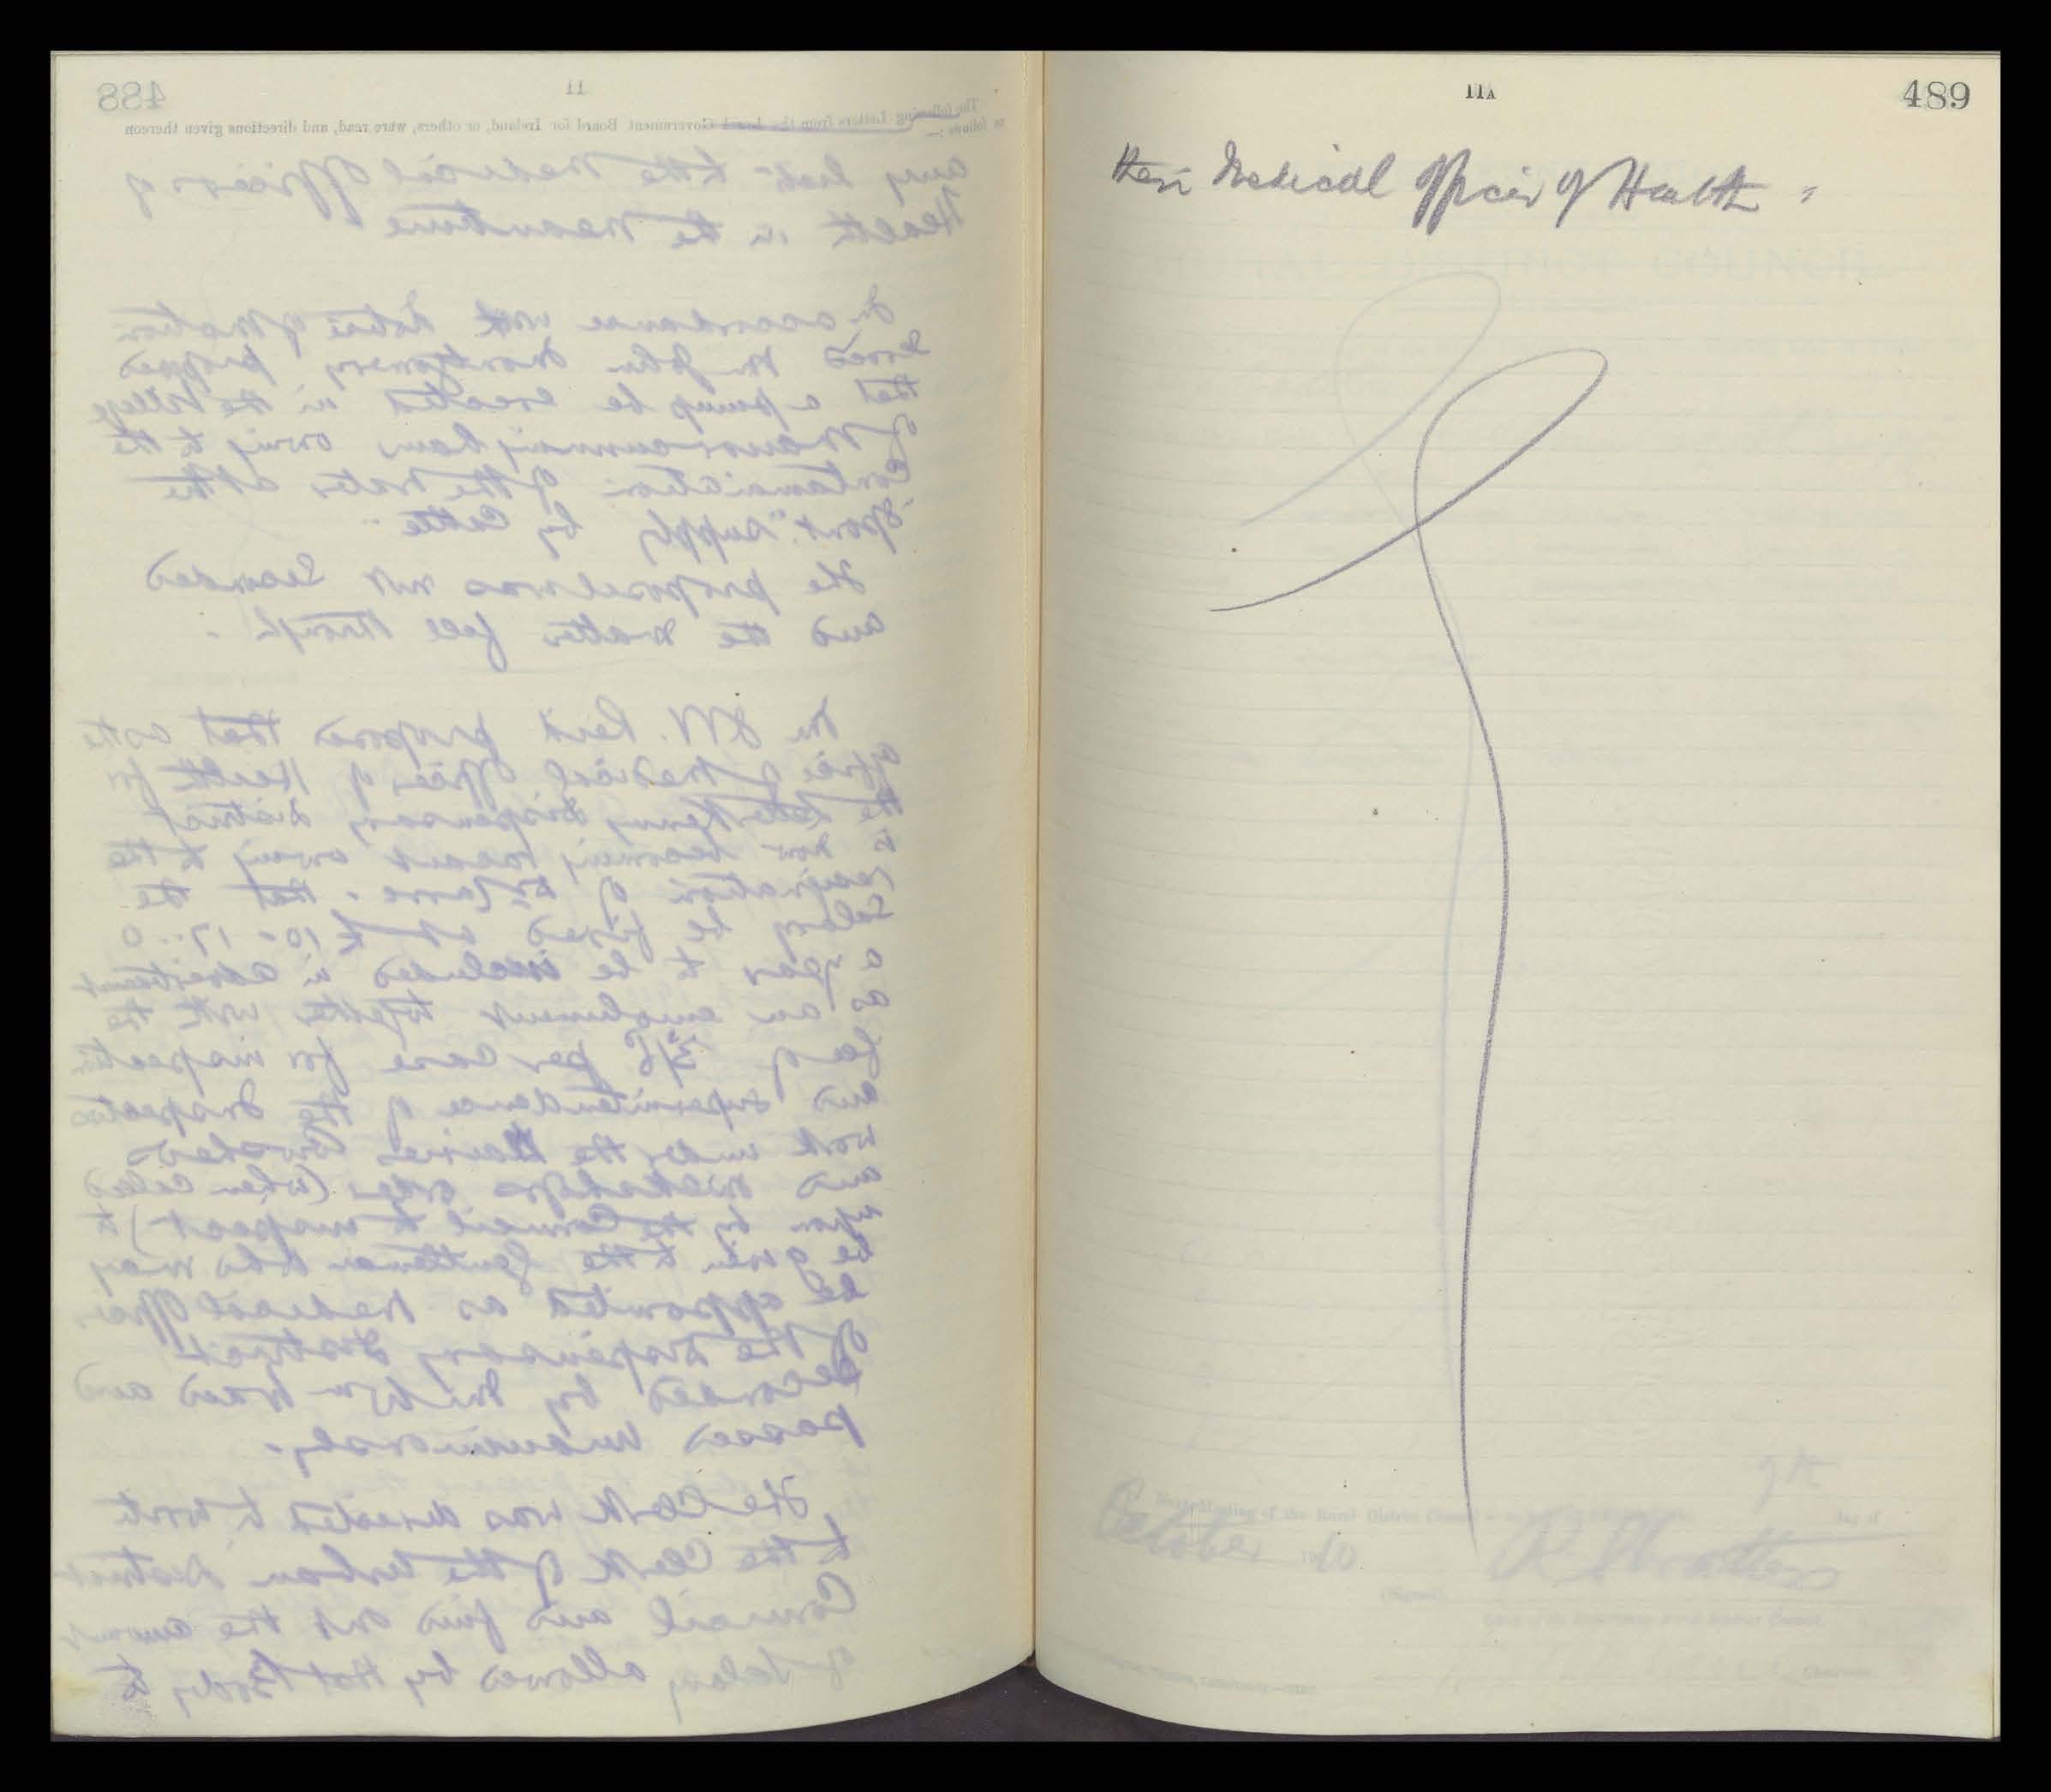 488
11
The following Letters from the Local Government Board for Ireland, or others, were read, and directions given thereon
as follows :—
any hint to the Medical Officer of
Health in the meantime
In accordance with Notice of Motion
served Mr John Montgomery proposed
that a pump be erected in the Village
of Manorcunningham owing to the
Contamination of the Water at the
"Spout" supply by Cattle
The proposal was not Seconded
and the matter fell through.
Mr J.W. Reid proposed that as the
office of Medical Officer of Health for
the Letterkenny Dispensary District
is now becoming vacant owing to the
resignation of Dr Carre. that the
Salary be fixed at £10. 17. 0
a year to be included in advertisement
as an emolument together with the
fee of 3/6 per case for inspection
and superintendence of the Inspection
work under the Dairies Cowsheds
and milkshops order (when called
upon by the Council to inspect) to
be given to the Gentleman who may
be appointed as Medical Officer
of the Dispensary District
Seconded by Wilson and
passed unanimously.
The Clerk was directed to write
to the Clerk of the Urban District
Council and find out the amount
of Salary allowed by that Body to
11A
489
their Medical Officer of Health.
Next Meeting of the Rural District Council 9th day of
October 1910
(Signed)
Chairman